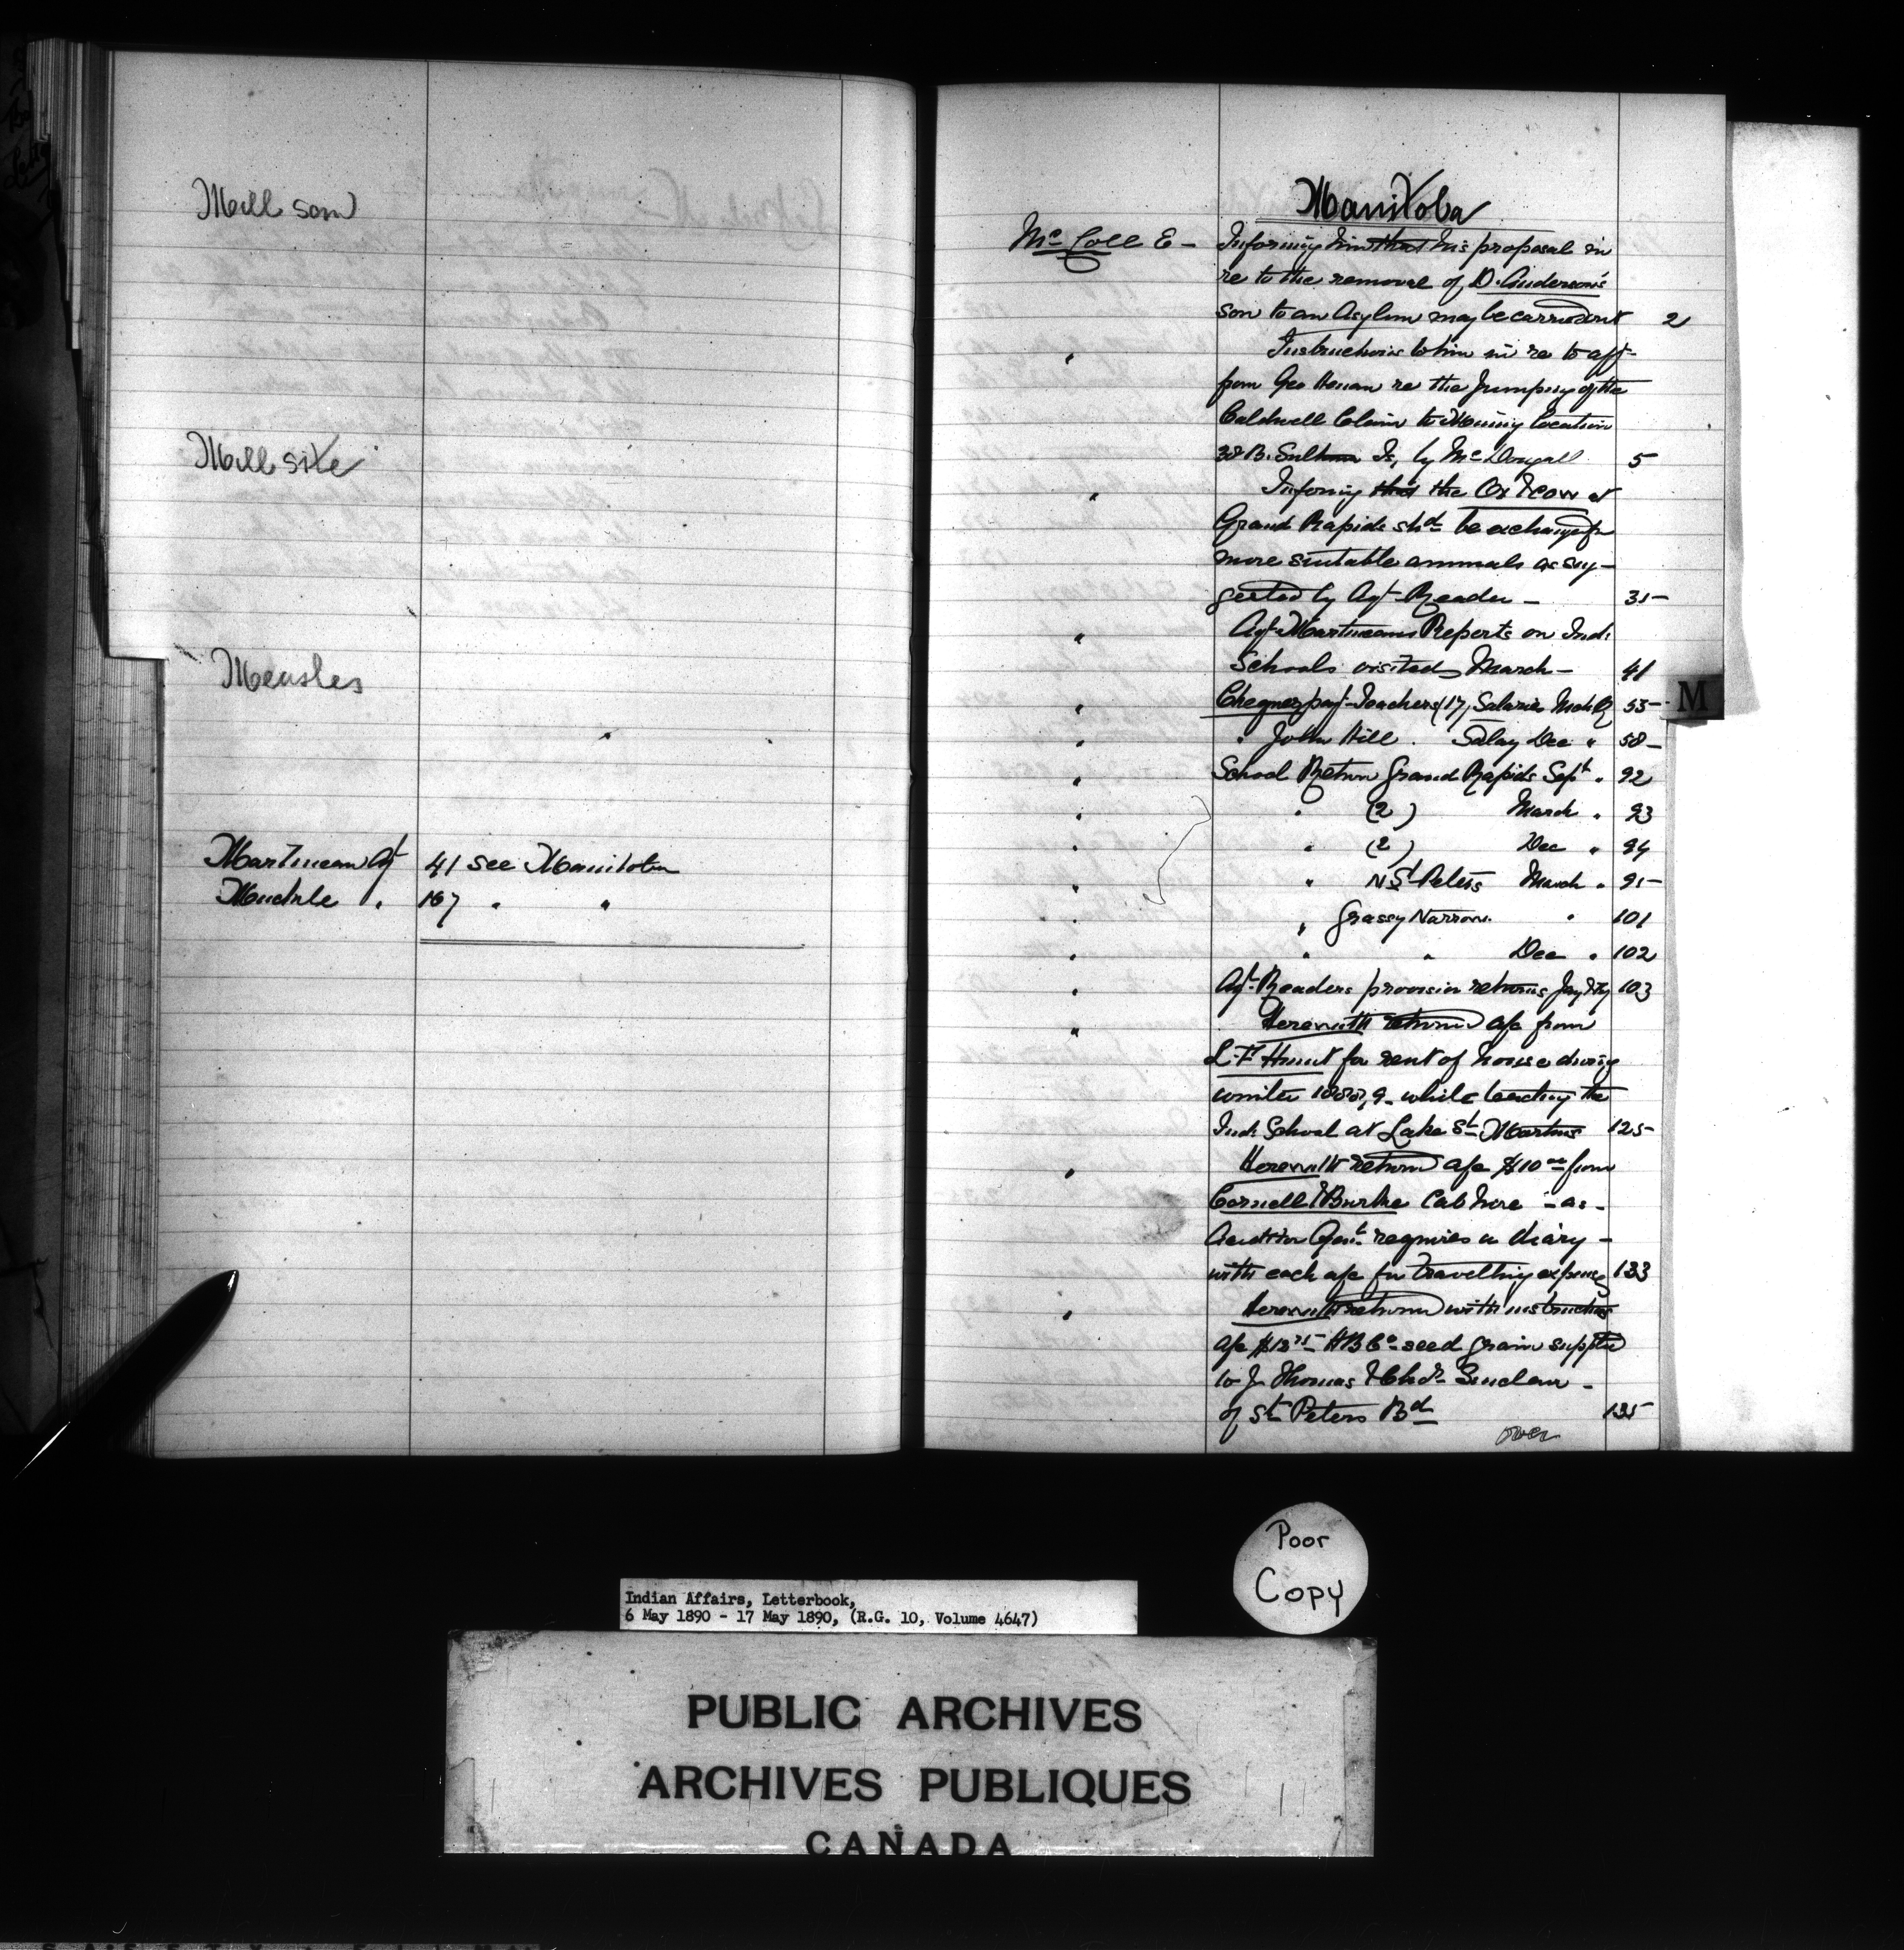 Mill saw
Mill site
Measles
Martineau Agt 41 see Manitoba
Muckle " 167 " "
Manitoba
McColl E - Informing him that his proposal in
re to the removal of D. Anderson's
son to an Asylum may be carried out 2
" Instructions to him in re to aff-
from Geo Heenan re the jumping of the
Caldwell Claim to Mining Location
38 B. Sultana Is, by McDougall 5
" Informing that the Ox & cow at
Grand Rapids shd be exchanged for
more suitable animals as sug-
gested by Agt Reader - 35-
" Agt Martineau's Reports on Ind:
Schools visited March - 41
" Cheques payt Teachers (17) Salaries Mch Q 55-
" " John Hill . Salary Dec " 58-
" School Return Grand Rapids Sept " 92
" " (2) March " 93
" " (2) Dec " 94
" " N St Peters March " 95-
" " Grassy Narrows " 101
" " " Dec " 102
" Agt Readers provision returns 103
" Herewith return a/c from
L.F. Hunt for rent of house during
winter 1888,9. while teaching the
Ind: School at Lake St Martins 125-
" Herewith return a/c $10 00 from
Cornell & Burke Cab hire - as -
Auditor Genl requires a diary -
with each a/c for travelling expenses 133
" Herewith return with instructions
a/c HB Co seed grain supplied
to J Thomas & Chas Sinclair -
of St Peters Bd 135
over
M
Poor
Copy
Indian Affairs, Letterbook,
6 May 1890 - 17 May 1890, (R.G. 10, Volume 4647)
PUBLIC ARCHIVES
ARCHIVES PUBLIQUES
CANADA